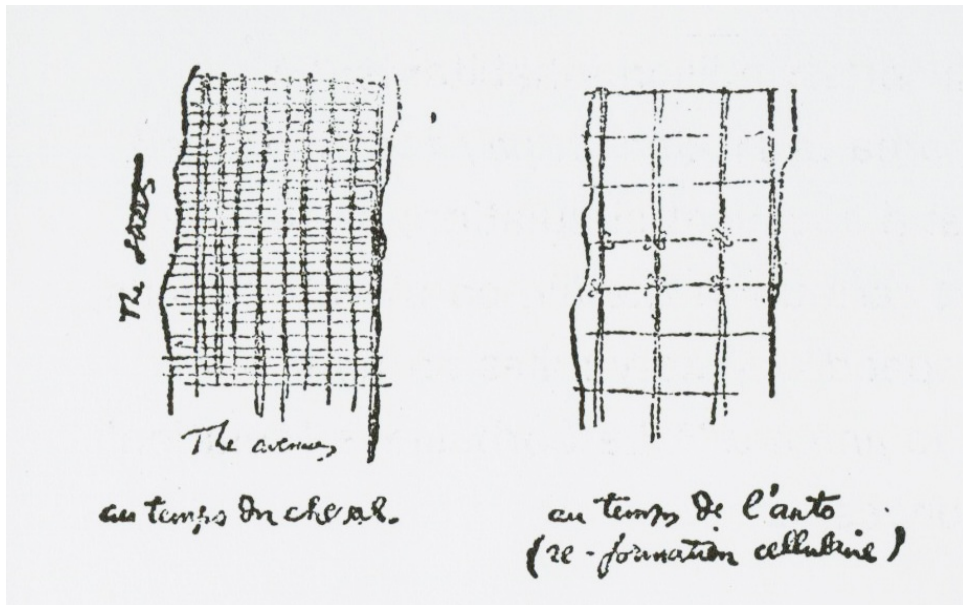 The streets
The avenues
au temps du cheval.
au temps de l'auto
(re-formation cellulaire)